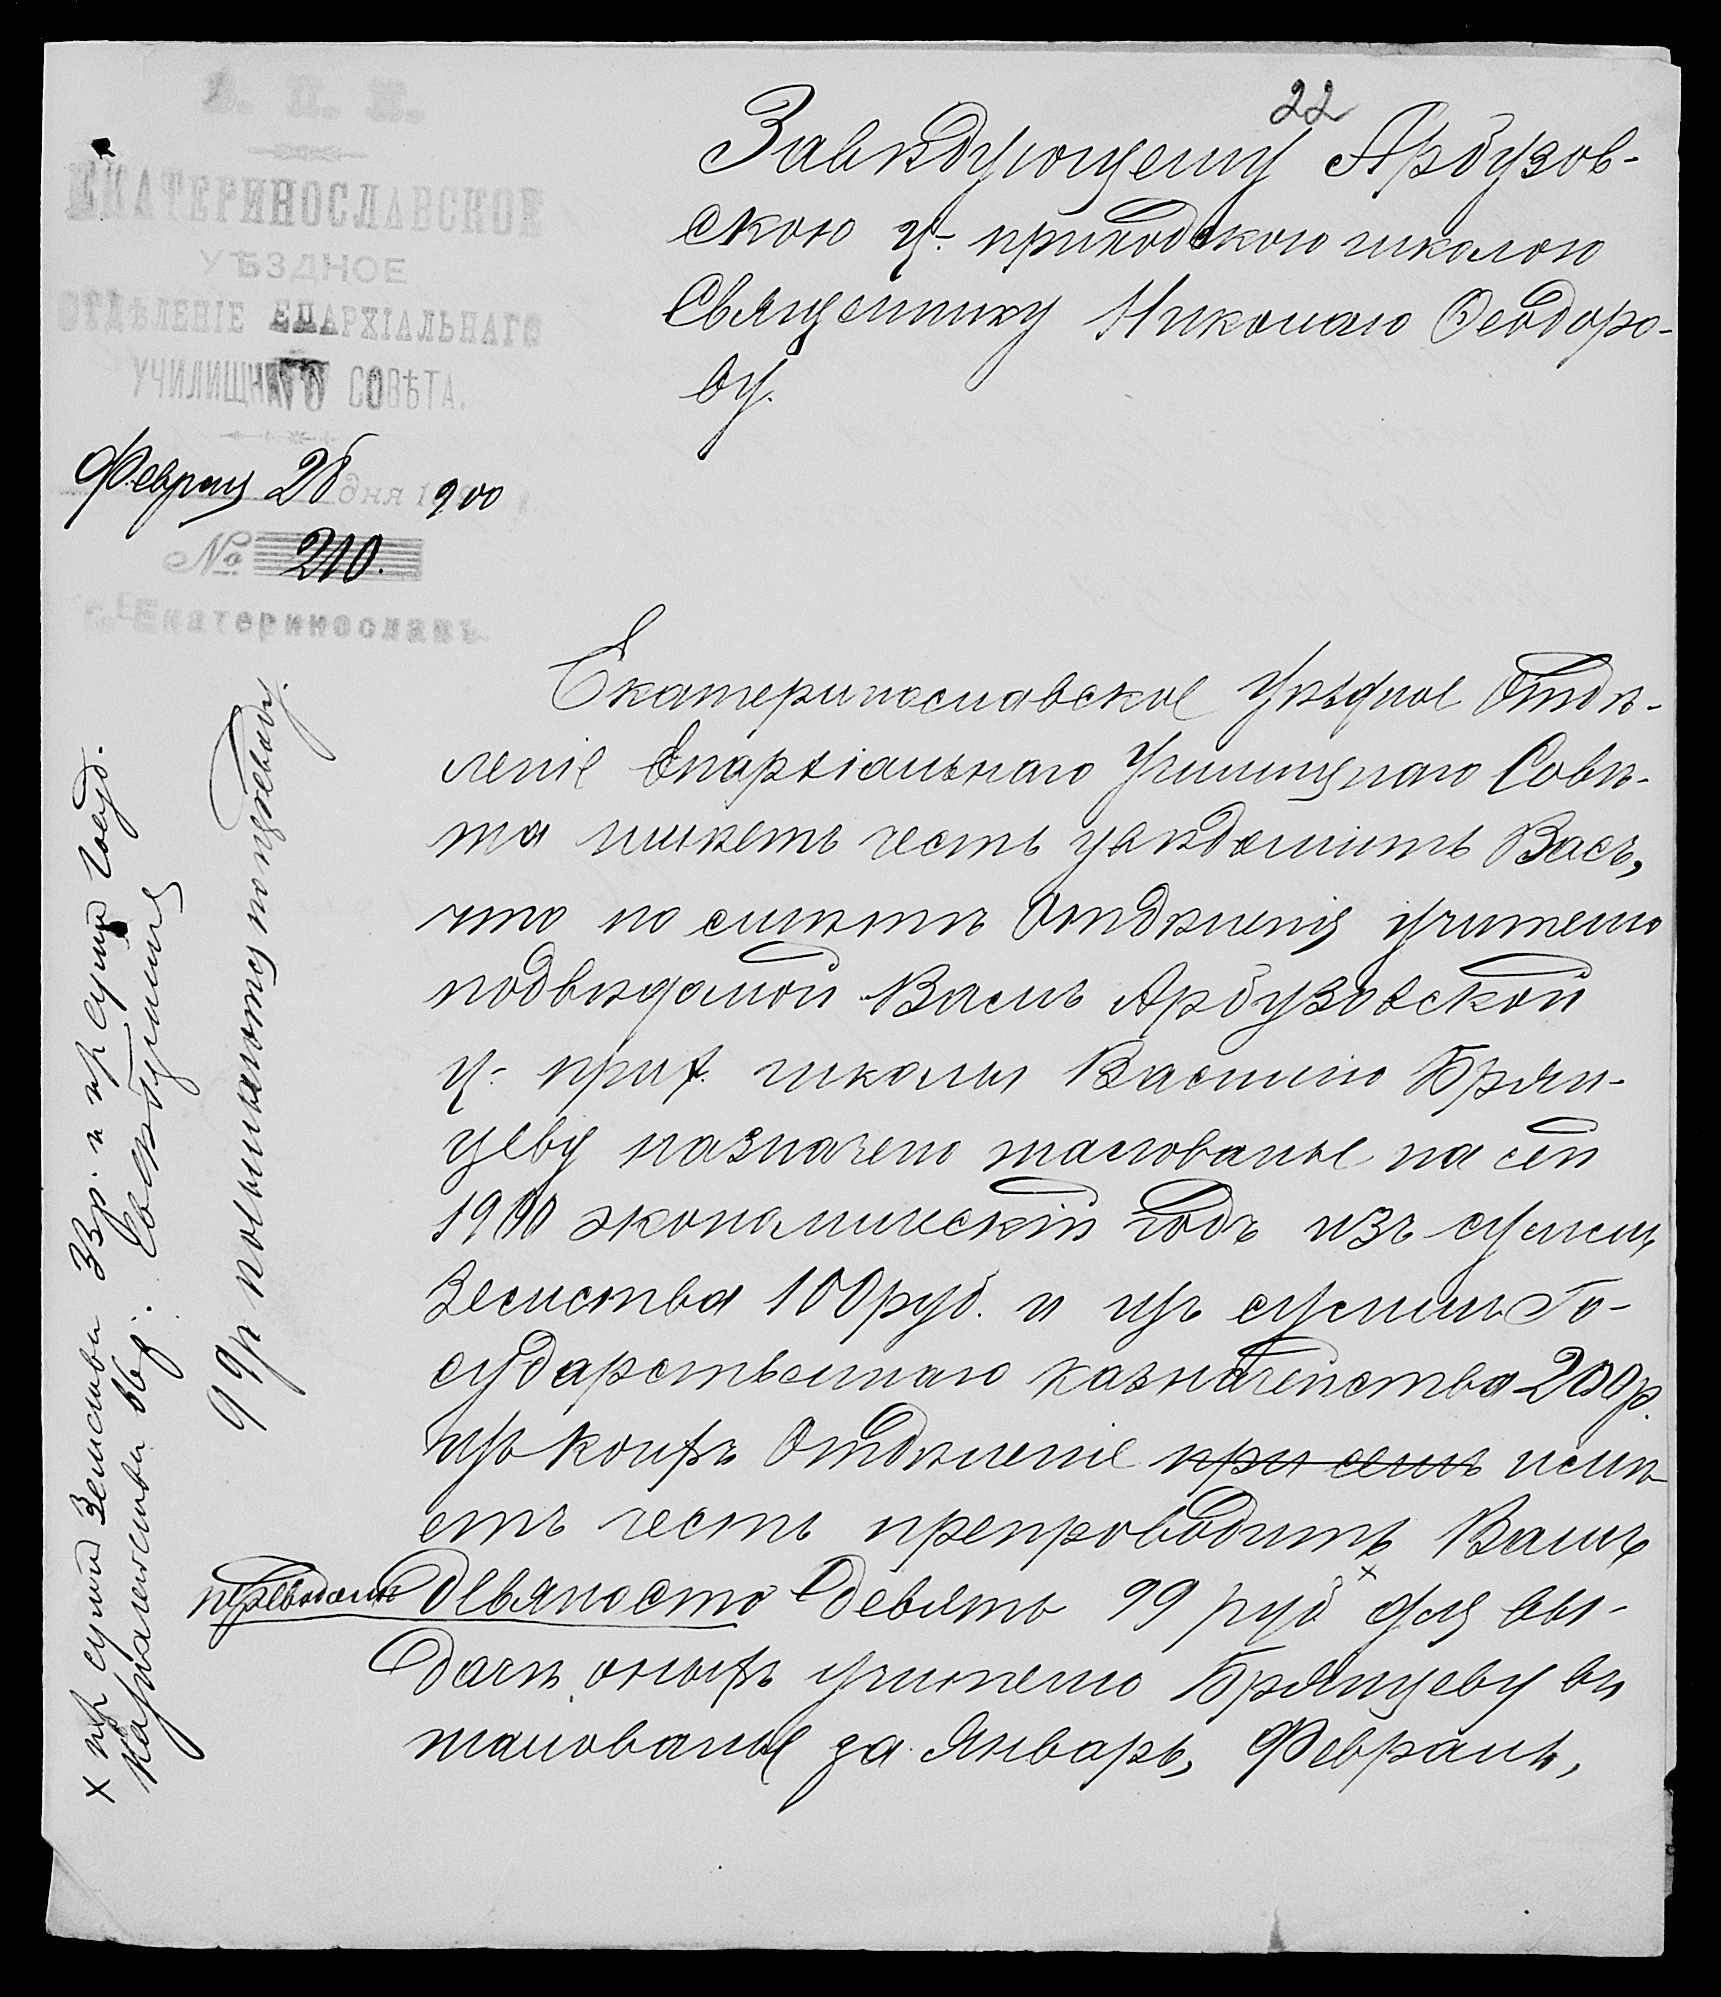 22
В. П. И.
ЕКАТЕРИНОСЛАВСКОЕ
УѢЗДНОЕ
ОТДѢЛЕНІЕ ЕПАРХІАЛЬНАГО
УЧИЛИЩНАГО СОВѢТА.
Февраля 28 дня 1900
№ 210.
г. Екатеринославъ
Завѣдующему Арбузов-
скою ц.- приходскою школою
Священнику Николаю Ѳеодоро-
ву.
Екатеринославское Уѣздное Отдѣ-
леніе Епархіальнаго Училищнаго Совѣ-
та имѣетъ честь увѣдомить Васъ,
что по смѣтѣ Отдѣленія учителю
подвѣдомой Вамъ Арбузовской
ц.- прих. школы Василію Брян-
цеву назначено жалованье на сей
1900 экономическій годъ изъ суммъ
Земства 100 руб. и изъ суммъ Го-
сударственнаго казначейства 200 р.
Изъ коихъ Отдѣленіе при семъ имѣ-
етъ честь препроводить Вамъ
переводомъ девяносто девять 99 руб × для вы-
дачи оныхъ учителю Брянцеву въ
жалованье за Январь, Февраль,
× из сумм Земства 33 р. и из сумм Госуд.
Казначейства 66 р.
99 р